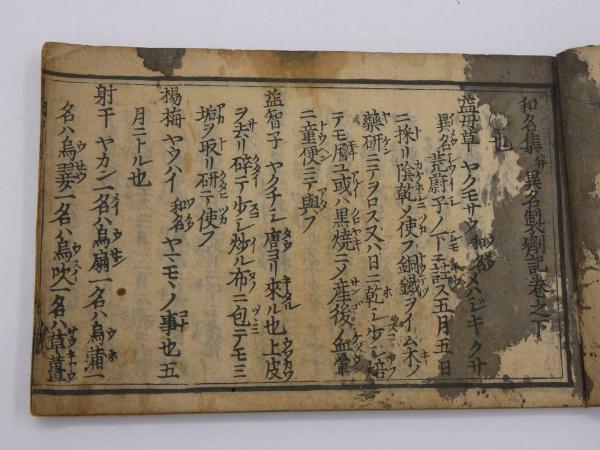 和名集并異名製劑記巻之下
〇也
益母草 ヤクモサウ 和名メハジキ クサ
異名茺蔚子ノ下ニ記ス五月五日
ニ採リ陰乾ノ使フ銅鐵ヲイム末ノ
藥研ニテヲロス又ハ日ニ乾シ少シ焙
テモ磨ユ或ハ黒燒ニノ産後ノ血暈
ニ童便ニテ與フ
益智子 ヤクチシ 唐ヨリ來ル也上皮
ヲ去リ碎テ少シ炒ル布ニ包テモミ
垢ヲ取リ研テ使フ
楊梅 ヤウハイ 和名ヤマモヽノ事也五
月ニトル也
射干 ヤカン一名ハ烏扇一名ハ烏蒲一
名ハ烏翣一名ハ烏吹一名ハ草薑